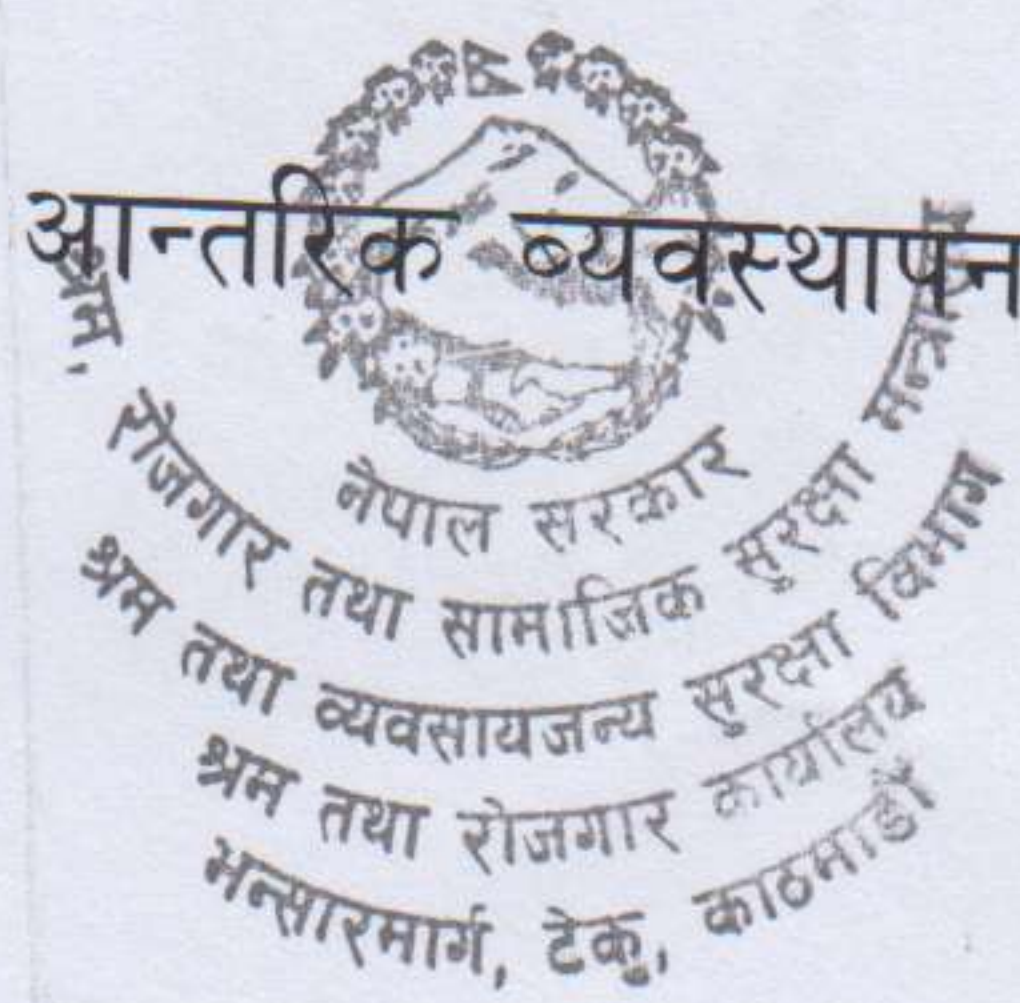 आन्तरिक ब्यवस्थापन
नेपाल सरकार
श्रम, रोजगार तथा सामाजिक सुरक्षा
श्रम तथा व्यवसायजन्य सुरक्षा विभाग
श्रम तथा रोजगार कार्यालय
भन्सारमार्ग, टेकु, काठमाडौं